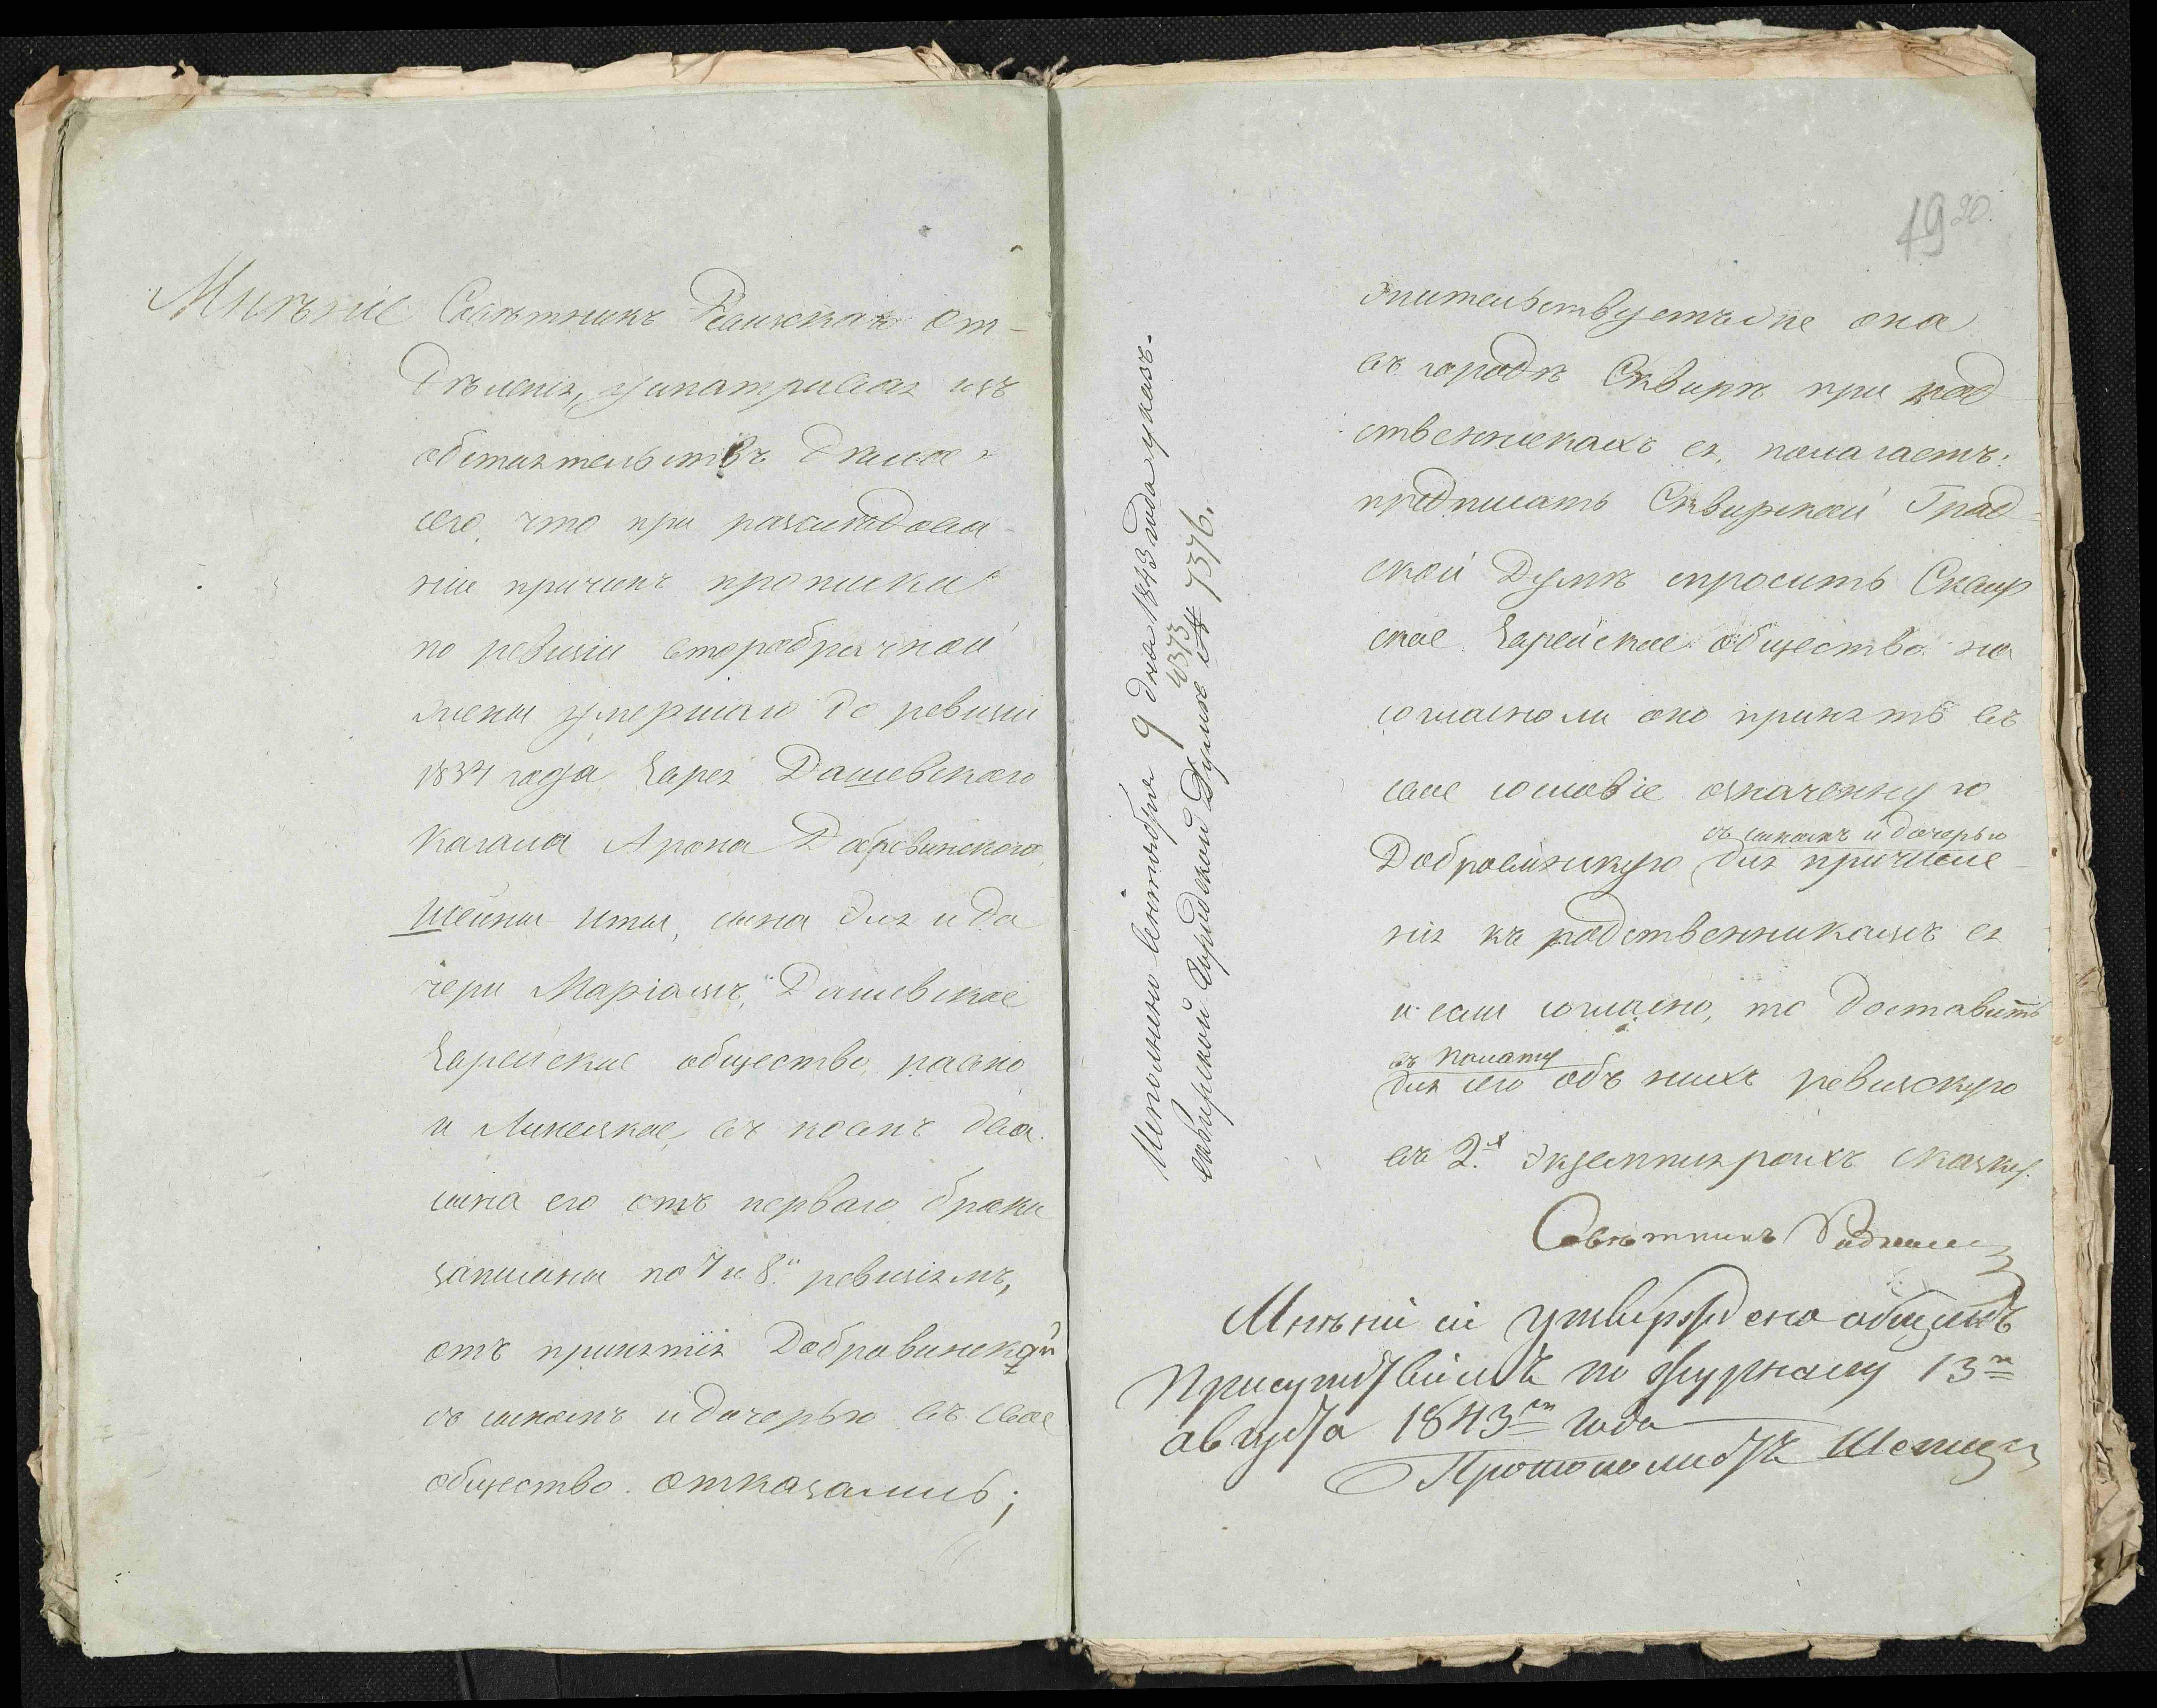 Мнѣніе Совѣтникъ Ревизскаго От-
дѣленія, усматривая изъ
обстоятельствъ дѣла
сего, что при разслѣдова-
ніи причинъ прописки
по ревизіи второбрачной
жены умершаго до ревизіи
1834 года Еврея Дашевскаго
Кагала Арона Добровинскаго
Шейны Иты, сына и до
чери Маріамъ, Дашевское
Еврейское общество, равно
и Линецкое, въ коемъ два
сына его отъ перваго брака
записаны по 7 и 8й ревизіямъ,
отъ принятія Добровинской
съ сыномъ и дочерью въ свое
общество отказались;
19 20.
жительствуетъ же она
въ городѣ Сквирѣ при род
ственникахъ ея, полагаетъ:
предписать Сквирской Град
ской Думѣ спросить Сквир
ское Еврейское общество на
согласно ли оно принять въ
свое сословіе означенную
съ сыномъ и дочерью
Добровинскую для причисле
нія къ родственникамъ ея
и если согласно, то доставить
въ Палату
для сего объ нихъ ревизскую
въ 2х экземплярахъ сказку.
Совѣтникъ
Мнѣніе сіе утверждено общимъ
Присутствіемъ по журналу 13го
августа 1843го года
Протоколистъ
Исполнено Сентября 9 дня 1843 года указъ.
Сквирской Городской Думѣ 7376.
4373